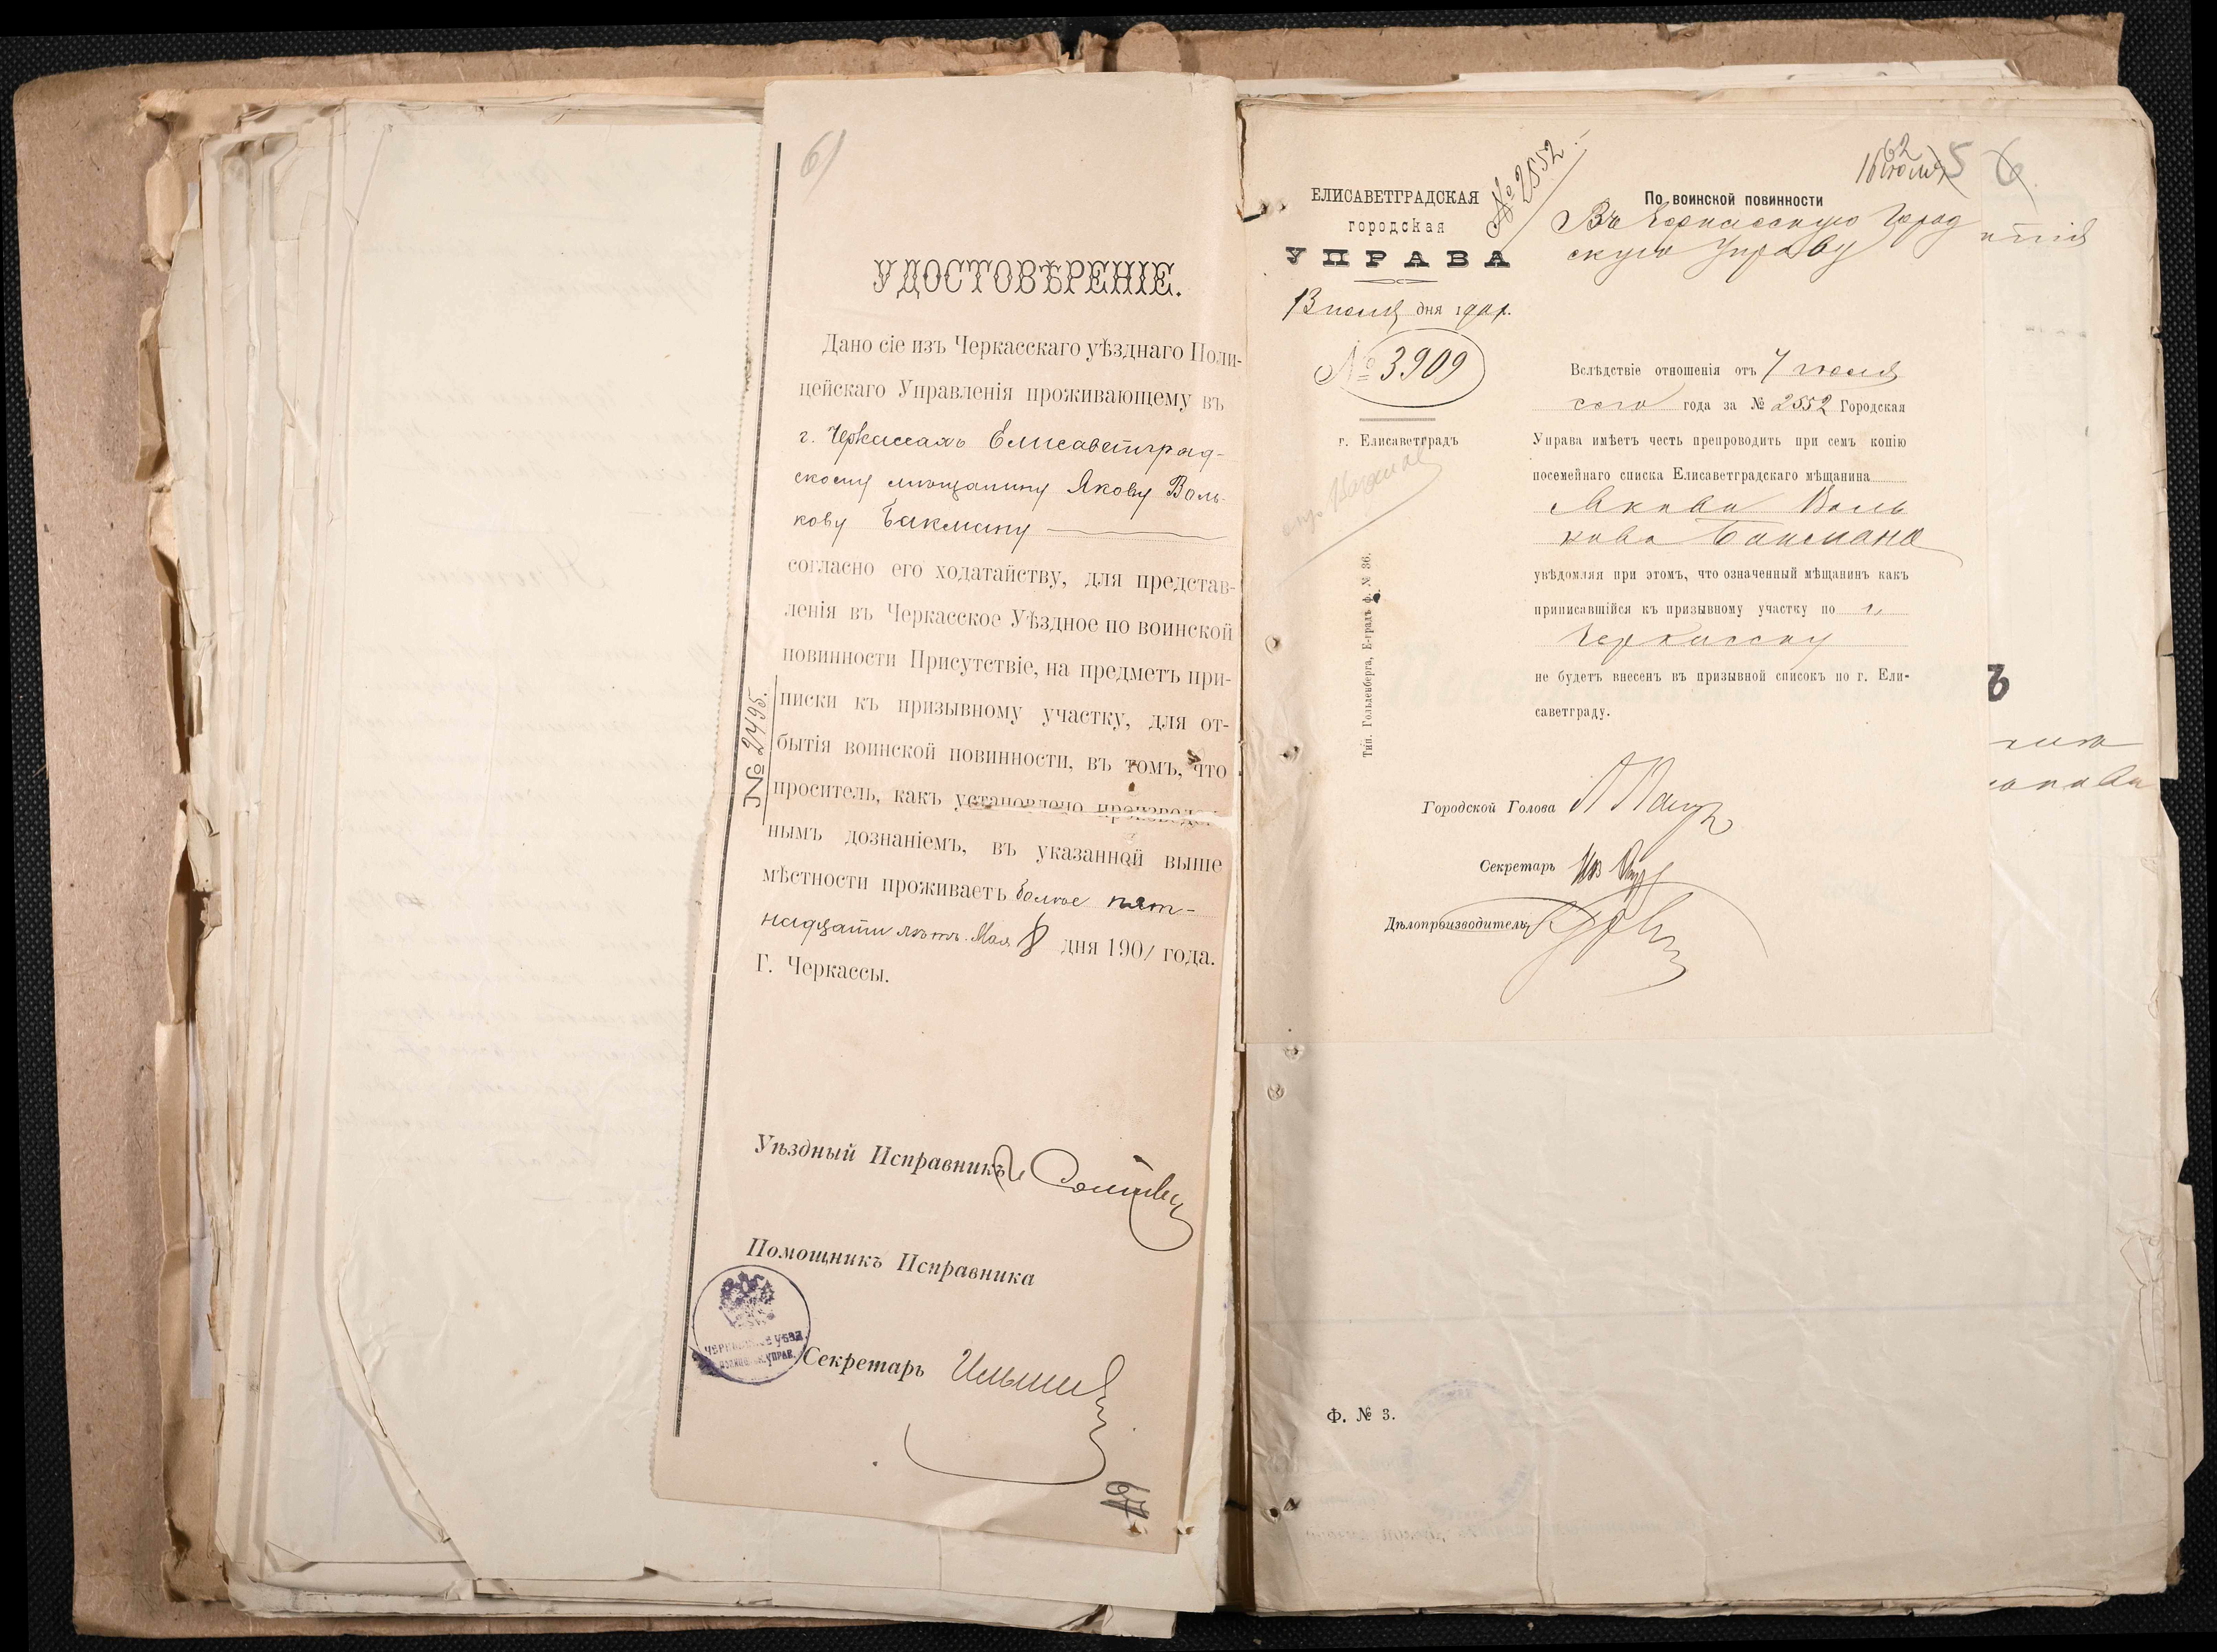 61
УДОСТОВѢРЕНІЕ.
Дано сіе изъ Черкасскаго уѣзднаго Поли-
цейскаго Управленія проживающему въ
г. Черкассахъ Елисаветград-
скому мѣщанину Якову Воль-
кову Бакману
согласно его ходатайству, для представ-
ленія въ Черкасское Уѣздное по воинской
повинности Присутствіе, на предметъ при-
писки къ призывному участку, для от-
бытія воинской повинности, въ томъ, что
проситель, какъ установлено произведен-
нымъ дознаніемъ, въ указанной выше
мѣстности проживаетъ болѣе пят-
надцати лѣтъ. Мая 8 дня 1901 года.
Г. Черкассы.
№ 2495.
Уѣздный Исправникъ
Помощникъ Исправника
Секретарь Ильин
67
ЕЛИСАВЕТГРАДСКАЯ
городская
УПРАВА
13 июля дня 1901.
№ 3909
г. Елисаветградъ
№ 2552
62
16 июля
По воинской повинности
Въ Черкасскую Город
скую Управу
Вслѣдствіе отношенія отъ 7 июля
сего года за № 2552 Городская
Управа имѣетъ честь препроводить при семъ копію
посемейнаго списка Елисаветградскаго мѣщанина
Якова Воль
кова Бакмана
увѣдомляя при этомъ, что означенный мѣщанинъ какъ
приписавшійся къ призывному участку по г.
Черкассу
не будетъ внесенъ въ призывной списокъ по г. Ели-
саветграду.
Тип. Гольденберга, Е-градъ ф. № 36.
Городской Голова
Секретарь
Дѣлопроизводитель
Ф. № 3.